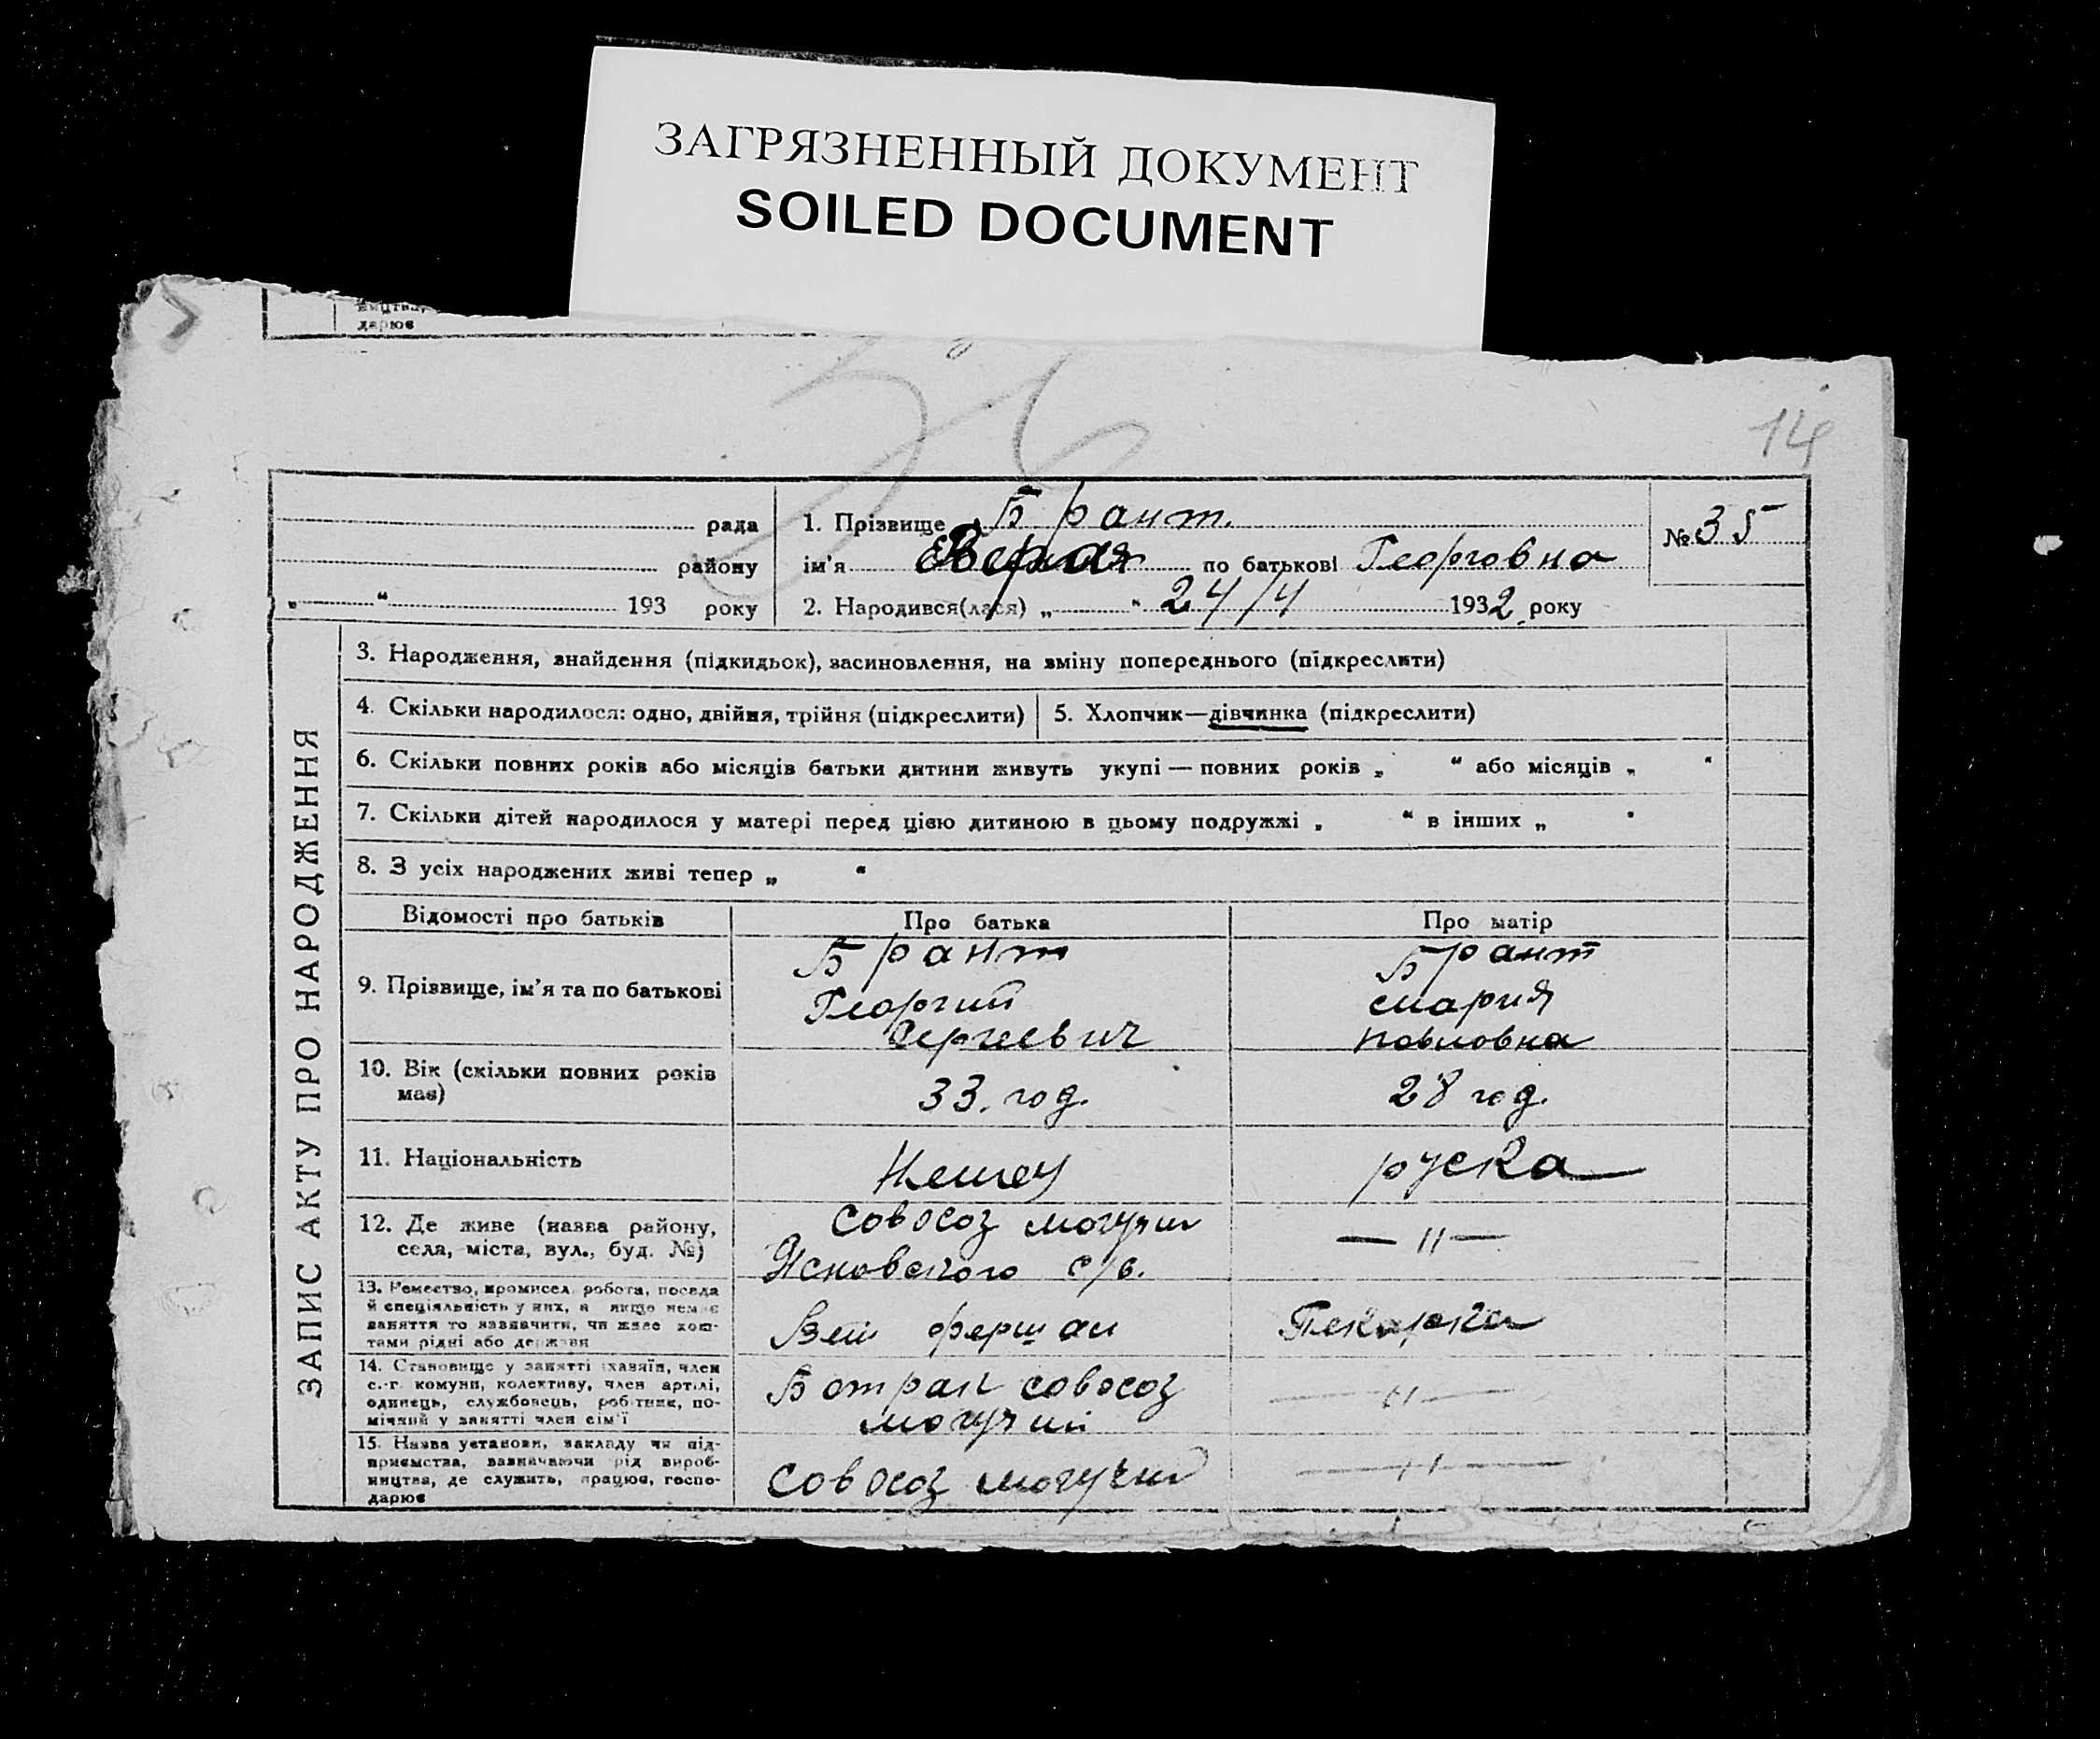 ЗАГРЯЗНЕННЫЙ ДОКУМЕНТ
SOILED DOCUMENT
дарює
36
14
рада
району
„ “ 193 року
1. Прізвище Брант.
ім'я по батькові Георговна
2. Народився(лася) „ “ 24/4 1932 року
№ 35
ЗАПИС АКТУ ПРО НАРОДЖЕННЯ
3. Народження, знайдення (підкидьок), засиновлення, на зміну попереднього (підкреслити)
4. Скільки народилося: одно, двійня, трійня (підкреслити)
5. Хлопчик—дівчинка (підкреслити)
6. Скільки повних років або місяців батьки дитини живуть укупі — повних років „ “ або місяців „ “
7. Скільки дітей народилося у матері перед цією дитиною в цьому подружжі „ “ в інших „ “
8. З усіх народжених живі тепер „ “
Відомості про батьків
Про батька
Про матір
9. Прізвище, ім'я та по батькові
Брант
Георгий
Сергеевич
Брант
Мария
Повловна
10. Вік (скільки повних років
має)
33. год.
28 год.
11. Національність
Немец
руска
12. Де живе (назва району,
села, міста, вул., буд. №)
Совосоз могучий
Ясновского с/в.
— 〃 —
13. Ремество, промисел, робота, посада
й спеціяльність у них, а якщо немає
заняття то зазначити, чи живе кош-
тами рідні або держави
Вет фершал
Пекарка
14. Становище у занятті (хазяїн, член
с.-г. комуни, колективу, член артілі,
одинець, службовець, робітник, по-
мічний у занятті член сім'ї
совосоз
могучий
— 〃 —
15. Назва установи, закладу чи під-
приємства, зазначаючи рід вироб-
ництва, де служить, працює, госпо-
дарює
Совосоз могучий
— 〃 —